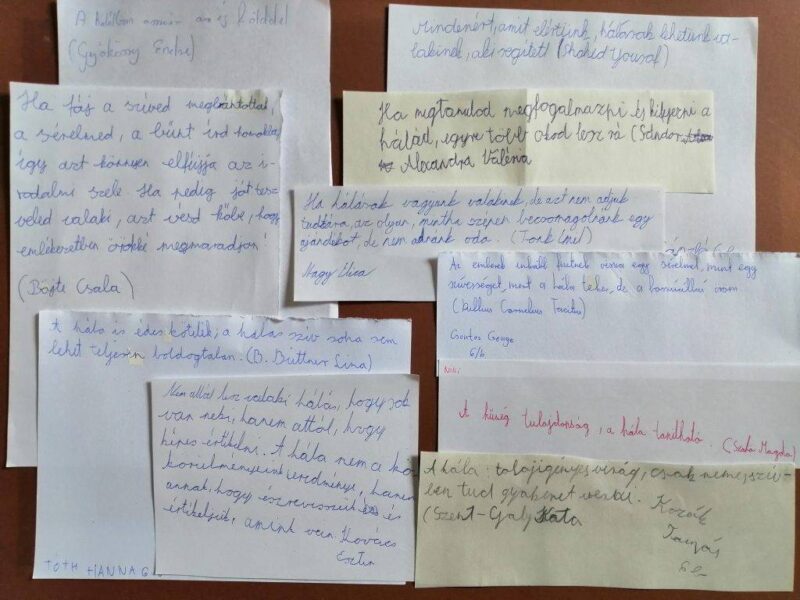 A hálában
(Gyökössy Endre)
Mindenért, amit elértünk, hálásak lehetünk va-
lakinek, aki segített (Shahid Yousaf)
Ha fáj a szíved megbántottak,
a sérelmed, a bűnt írd homokba,
így azt könnyen elfújja az i-
rodalmi szele Ha pedig jót tesz
veled valaki, azt vésd kőbe, hogy
emlékezetben örökké megmaradjon!
(Böjte Csaba)
Ha megtanulod megfogalmazni és kifejezni a
hálád, egyre több okod lesz rá (Sándor
Alexandra Valéria
Ha hálásak vagyunk valakinek, de azt nem adjuk
tudtára, az olyan, mintha szépen becsomagolnánk egy
ajándékot, de nem adnánk oda. (Tonk Emil)
Nagy Luca
Az emberek inkább fizetnek vissza egy sérelmet, mint egy
szívességet, mert a hála teher, de a bosszúállás öröm.
(Publius Cornelius Tacitus)
Csontos Gergő
6/b
A hála is édes kötelék; a hálás szív soha sem
lehet teljesen boldogtalan. (B. Büttner Lina)
TÓTH HANNA 6
Nem attól lesz valaki hálás, hogy sok
van neki, hanem attól, hogy
képes értékelni. A hála nem a kö
körülményeink eredménye, hanem
annak, hogy észrevesszük és
értékeljük, amink van. Kovács
Eszter
Niki
A hűség tulajdonság, a hála tanulható. (Szabó Magda)
A hála: talajigényes virág, csak nemes szív-
ben tud gyökeret verni.
(Szent-Gály Kata
Kozák
Tamás
6